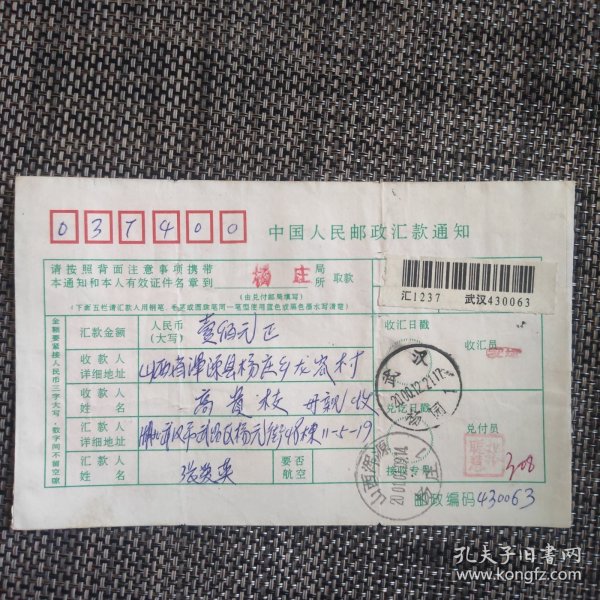 037400
中国人民邮政汇款通知
请按照背面注意事项携带
本通知和本人有效证件名章到 杨庄 局所 取款
(由兑付邮局填写)
(下面五栏请汇款人用钢笔、毛笔或圆珠笔同一笔型使用蓝色或黑色墨水写清楚)
汇1237 武汉430063
金额要紧接人民币三字大写,数字间不留空隙
汇款金额 人民币(大写) 壹佰元正
收汇日戳 收汇员
收款人详细地址 山西省浑源县杨庄乡龙岩村
武汉
收款人姓名 高贵枝 母亲收
兑讫日戳 兑付员
汇款人详细地址 湖北武汉市武昌区杨元街48栋11-5-19
汇款人姓名 要否航空
山西浑源
接收专戳
308
邮政编码430063
孔夫子旧书网
www.kongfz.com